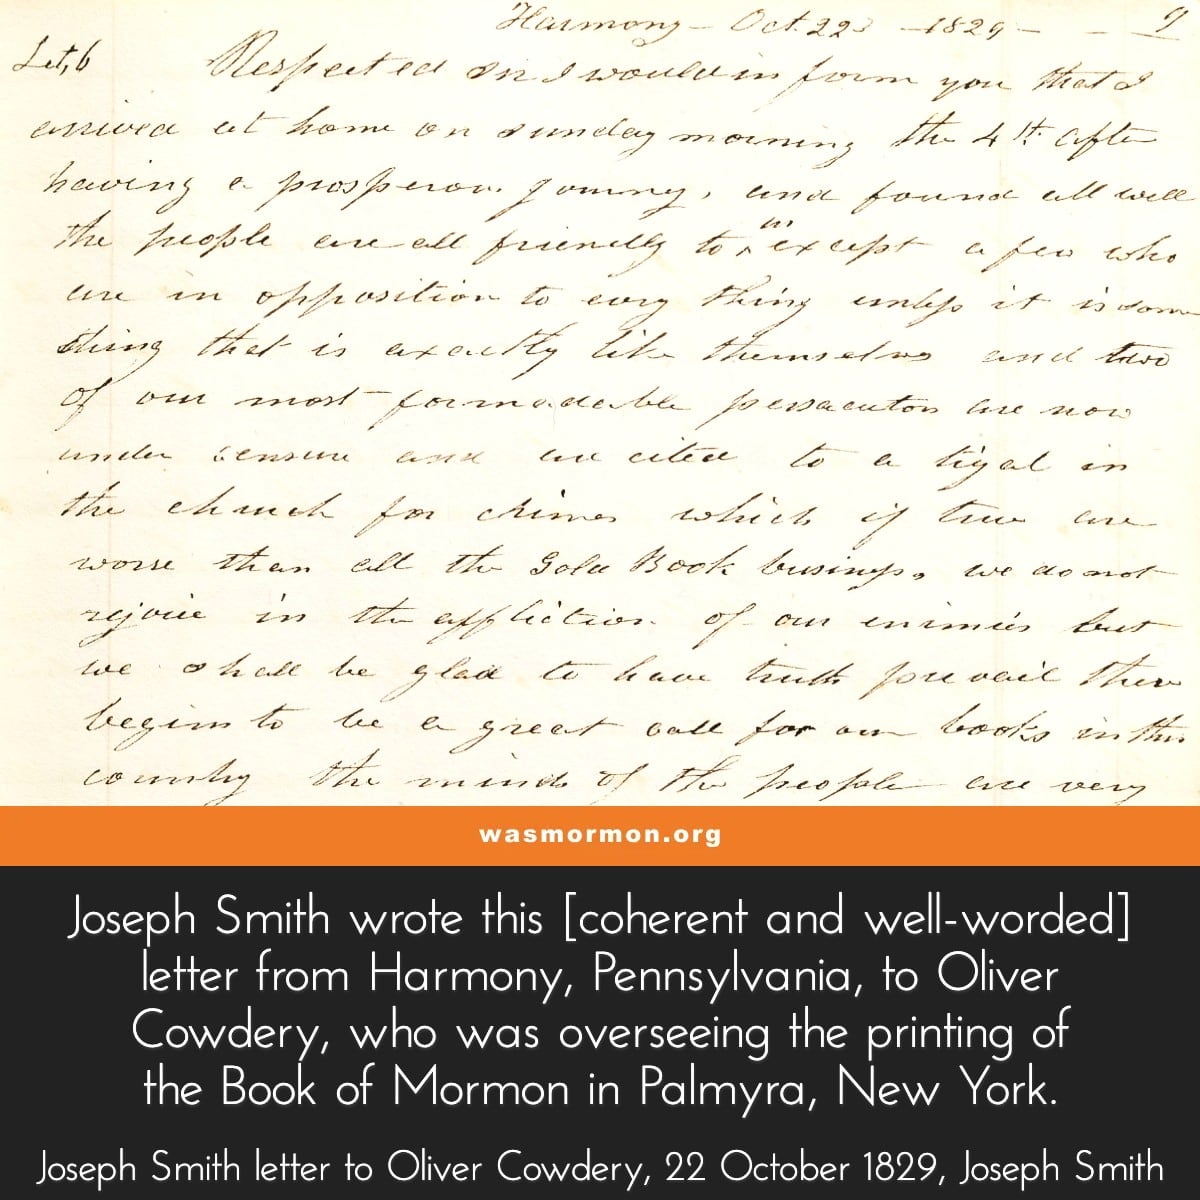 Harmony — Oct. 22d — 1829 — - 9
Let, 6 Respected Sir I would in form you that I
arrived at home on sunday morning the 4th after
having a prosperous Journey, and found all well
the people are all friendly to ^m except a few who
are in opposition to evry thing unless it is some
thing that is axactly like themselves and two
of our most formadable persacutors are now
under censure and are cited to a tryal in
the church for crimes which if true are
worse than all the Gold Book business, we do not
rejoice in the affliction of our enimies but
we shall be glad to have truth prevail there
begins to be a great call for our books in this
country the minds of the people are very
wasmormon.org
Joseph Smith wrote this [coherent and well-worded]
letter from Harmony, Pennsylvania, to Oliver
Cowdery, who was overseeing the printing of
the Book of Mormon in Palmyra, New York.
Joseph Smith letter to Oliver Cowdery, 22 October 1829, Joseph Smith